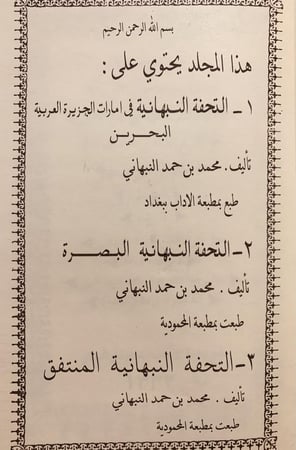 بسم الله الرحمن الرحيم
هذا المجلد يحتوي على :
١ - التحفة النبهانية في امارات الجزيرة العربية
البحرين
تأليف . محمد بن حمد النبهاني
طبع بمطبعة الاداب ببغداد
٢- التحفة النبهانية البصرة
تأليف . محمد بن حمد النبهاني
طبعت بمطبعة المحمودية
٣- التحفة النبهانية المنتفق
تأليف . محمد بن حمد النبهاني
طبعت بمطبعة المحمودية